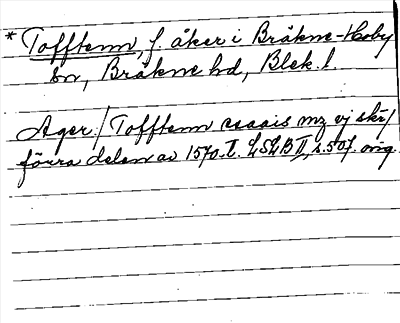 * Tofftenn, f. åker i Bräkne-Hoby
sn, Bräkne hd, Blek. l.
Ager / Tofftenn mz ej skr/
förra delen av 1570-t. LSLB II, s. 507. orig.